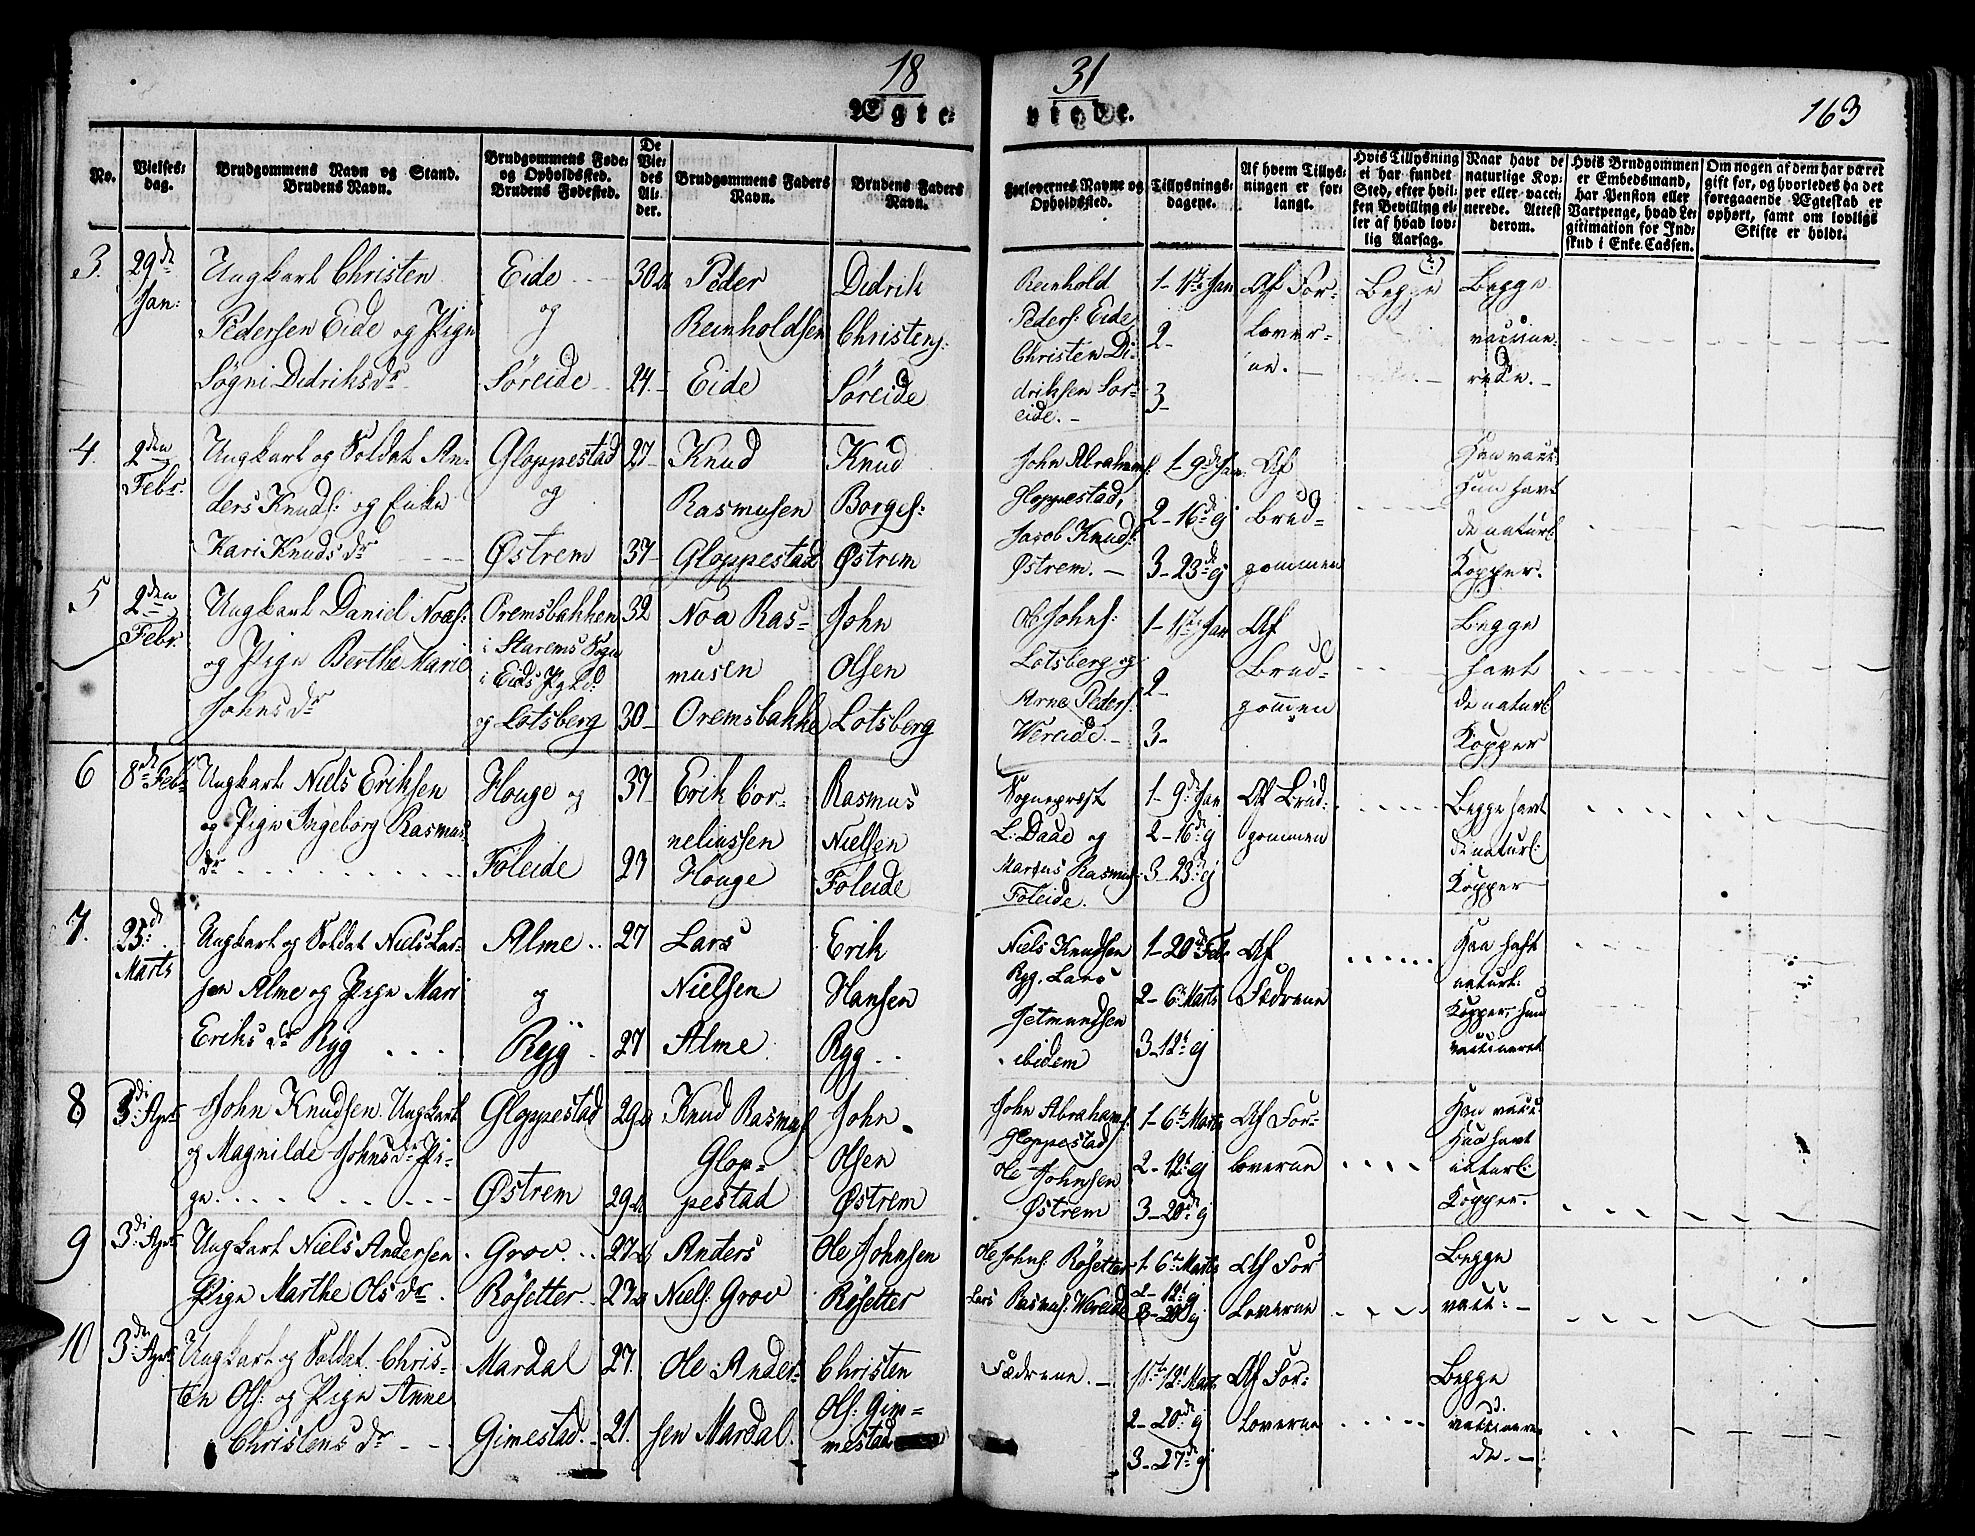 18 31
Ægte- viede.
163
No.
Vielses-
dag.
Brudgommens Navn og Stand.
Brudens Navn.
Brudgommens Føde-
og Opholdssted.
Brudens Fødested.
De
Vie-
des
Al-
der.
Brudgommens Faders
Navn.
Brudens Faders
Navn.
Forlovernes Navne og
Opholdssted.
Tillysnings-
dagene.
Af hvem Tillys-
ningen er for-
langt.
Hvis Tillysning
ei har fundet
Sted, efter hvil-
ken Bevilling el-
ler af hvad lov-
lig Aarsag.
Naar havt de
naturlige Kop-
per eller vacci-
nerede. Attest
derom.
Hvis Brudgommen
er Embedsmand,
har Pension eller
Vartpenge, hvad Le-
gitimation for Ind-
skud i Enke-Cassen.
Om nogen af dem har været
gift før, og hvorledes da det
foregaaende Ægteskab er
ophørt, samt om lovligt
Skifte er holdt.
3.
29de
Jan:
Ungkarl Christen
Pedersen Eide og Pige
Søgni Didriksdr
Eide
og
Søreide
30
24
Peder
Reinholdsen
Eide
Didrik
Christens:
Søreide
Reinhold
Peders: Eide
Christen Di-
driksen Sør-
eide.
1- Jan
2-
3-
Af For-
lover-
ne.
Begge
Begge
vaccine-
rede.
4.
2den
Febr.
Ungkarl og Soldat An-
ders Knuds: og Enke
Kari Knudsdr
Gloppestad
og
Østrem
27
37
Knud
Rasmusen
Gloppestad
Knud
Borges:
Østrem
John Abrahams:
Gloppestad,
Jacob Knuds:
Østrem.
1-9de Jan:
2-16de ej
3-23de ej
Af
Brud-
gommen
Han vacc:
Hun havt
de naturl:
Kopper.
5
2den
Febr.
Ungkarl Daniel Noæs:
og Pige Berthe Marie
Johnsdr
Oremsbakken
i Starems Sogn
i Eids Pgld:
og Lotsberg
32
30
Noa Ras-
musen
Oremsbakke
John
Olsen
Lotsberg
Ole Johns:
Lotsberg og
Arne Peders:
Wereide.
1- Jan
2-
3-
Af
Brud-
gommen
Begge
havt
de naturl:
Kopper
6
8de Febr
Ungkarl Niels Eriksen
og Pige Ingeborg Rasmus
dr
Houge og
Føleide
37
23
Erik Cor-
neliussen
Houge
Rasmus
Nielsen
Føleide
Sognepræst
L: Daae og
Martus Rasmus:
Føleide.
1-9de Jan
2-16de ej
3-23de ej
Af Brud-
gommen
Begge havt
de naturl:
Kopper
7.
25de
Marts
Ungkarl og Soldat Niels Lar-
sen Alme og Pige Mari
Eriksdr Ryg
Alme
og
Ryg
27
27
Lars
Nielsen
Alme
Erik
Hansen
Ryg
Niels Knudsen
Ryg, Lars
Jetmundsen
ibidem
1-20de Febr
2-6te Marts
3-12te ej
Af
Fædrene
Han haft
naturl:
Kopper, hun
vaccineret
8
3di Apr
John Knudsen Ungkarl
og Magnilde Johnsdr Pi-
ge
Gloppestad
Østrem
29
29
Knud Rasmus
Glop-
pestad
John
Olsen
Østrem
John Abrahams:
Gloppestad
Ole Johnsen
Østrem
1-6te Marts
2-12te ej
3-20de ej
Af For-
loverne
Han vacc:
Hun havt
naturl:
Kopper
9
3di Apr
Ungkarl Niels Andersen
Pige Marthe Olsdr
Grov
Røsetter
27
23
Anders
Niels: Grov
Ole Johnsen
Røsetter
Ole Johns: Røsetter
Lars Rasmus: Wereide
1-6te Marts
2-12te ej
3-20de ej
Af For
loverne
Begge
vacc:
10
3di Apr
Ungkarl og Soldat Chris-
ten Ols: og Pige Anne
Christensdr
Mardal
Gimestad
27
21
Ole Ander-
sen Mardal
Christen
Ols: Gim-
mestad
Fædrene.
1ste 12te Marts
2-20de ej
3-27de ej
Af For-
loverne
Begge
vaccinere-
de.